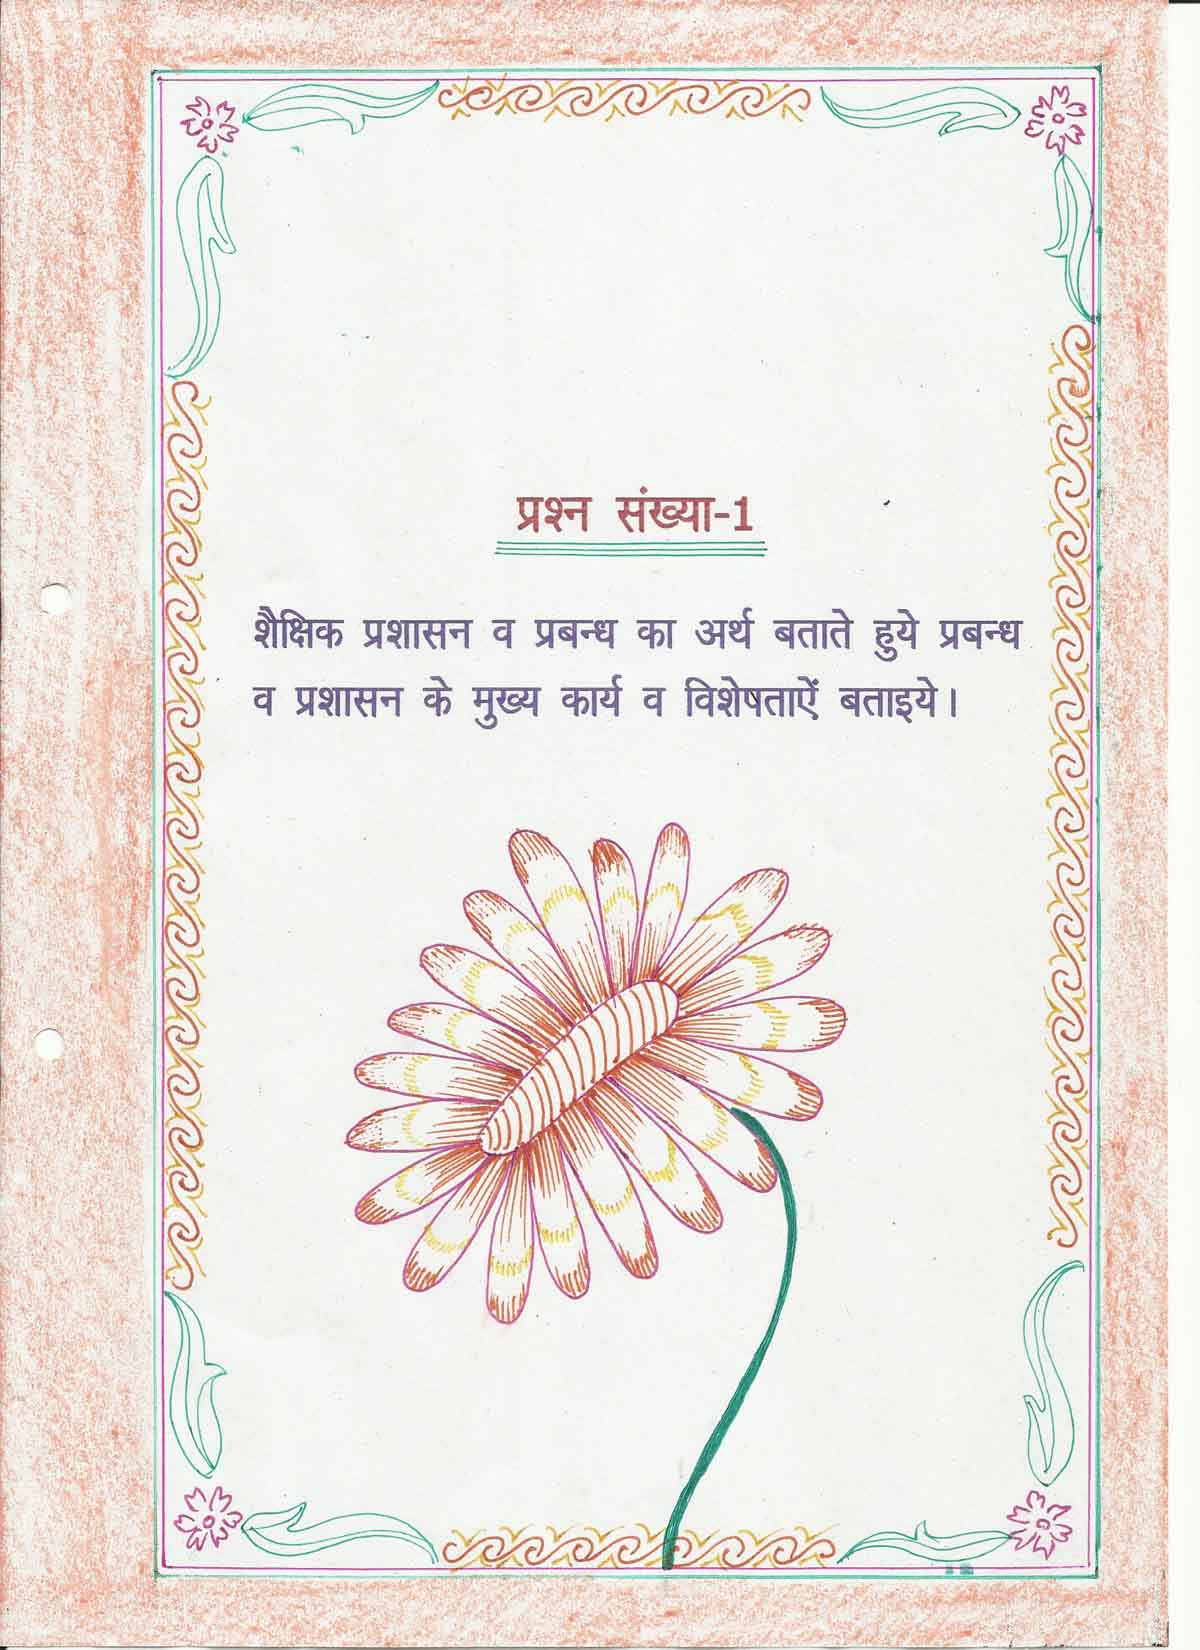 प्रश्न संख्या-1
शैक्षिक प्रशासन व प्रबन्ध का अर्थ बताते हुये प्रबन्ध
व प्रशासन के मुख्य कार्य व विशेषताऐं बताइये।